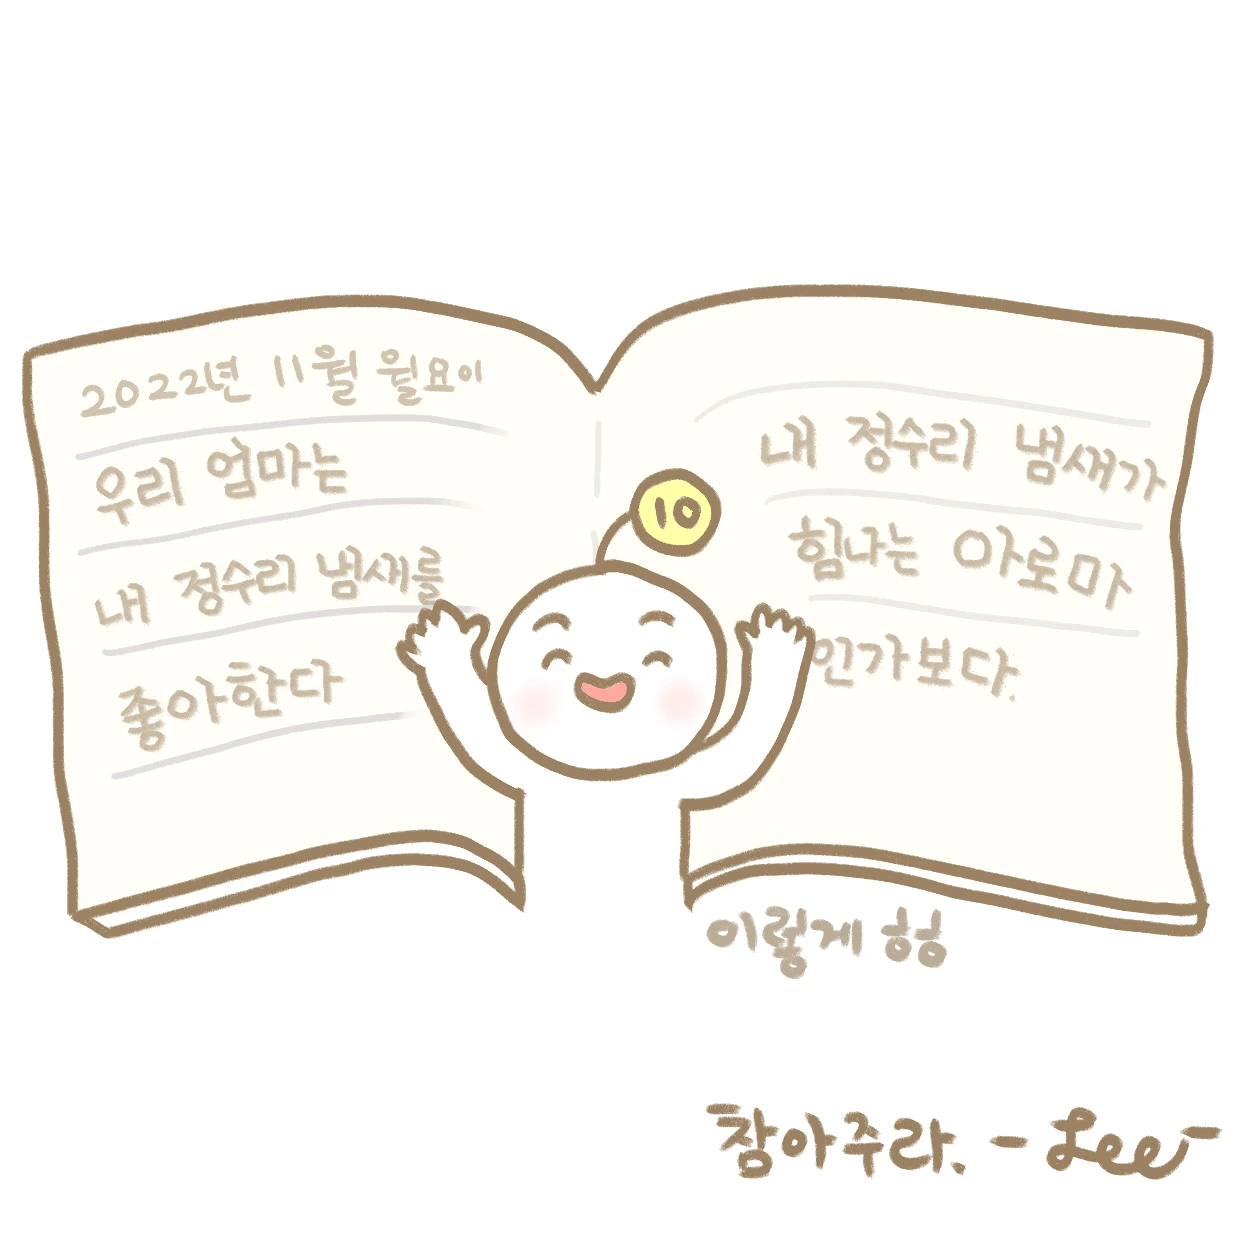 2022년 11월 월요이
우리 엄마는
내 정수리 냄새를
좋아한다
내 정수리 냄새가
힘나는 아로마
인가보다.
10
이렇게 헝헝
참아주라. - Lee -